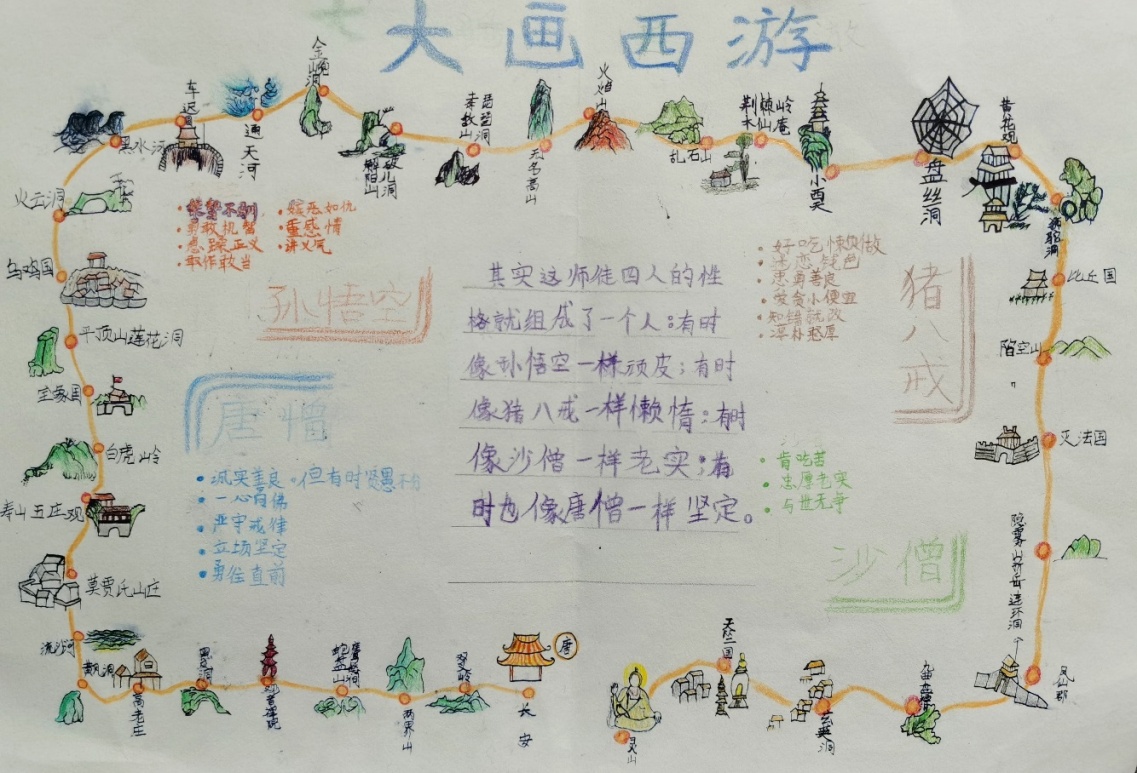 大画西游
金㠉洞
车迟国
通天河
黑水河
火云洞
乌鸡国
平顶山莲花洞
宝象国
白虎岭
寿山五庄观
莫贾氏山庄
流沙河
黄风洞
高老庄
观音禅院
两界山
双叉岭
长安
唐
琵琶洞
无名高山
火焰山
乱石山
荆棘岭
木仙庵
小西天
盘丝洞
黄花观
狮驼洞
比丘国
陷空山
灭法国
隐雾山折岳连环洞
凤仙郡
玄英洞
天竺国
灵山
桀骜不驯
勇敢机智
敢作敢当
嫉恶如仇
重感情
讲义气
孙悟空
唐僧
诚实善良
但有时贤愚不分
一心向佛
严守戒律
立场坚定
勇往直前
其实这师徒四人的性
格就组成了一个人：有时
像孙悟空一样顽皮；有时
像猪八戒一样懒惰；有时
像沙僧一样老实；有
时也像唐僧一样坚定。
好吃懒做
忠勇善良
爱贪小便宜
知错就改
淳朴憨厚
猪八戒
肯吃苦
忠厚老实
与世无争
沙僧